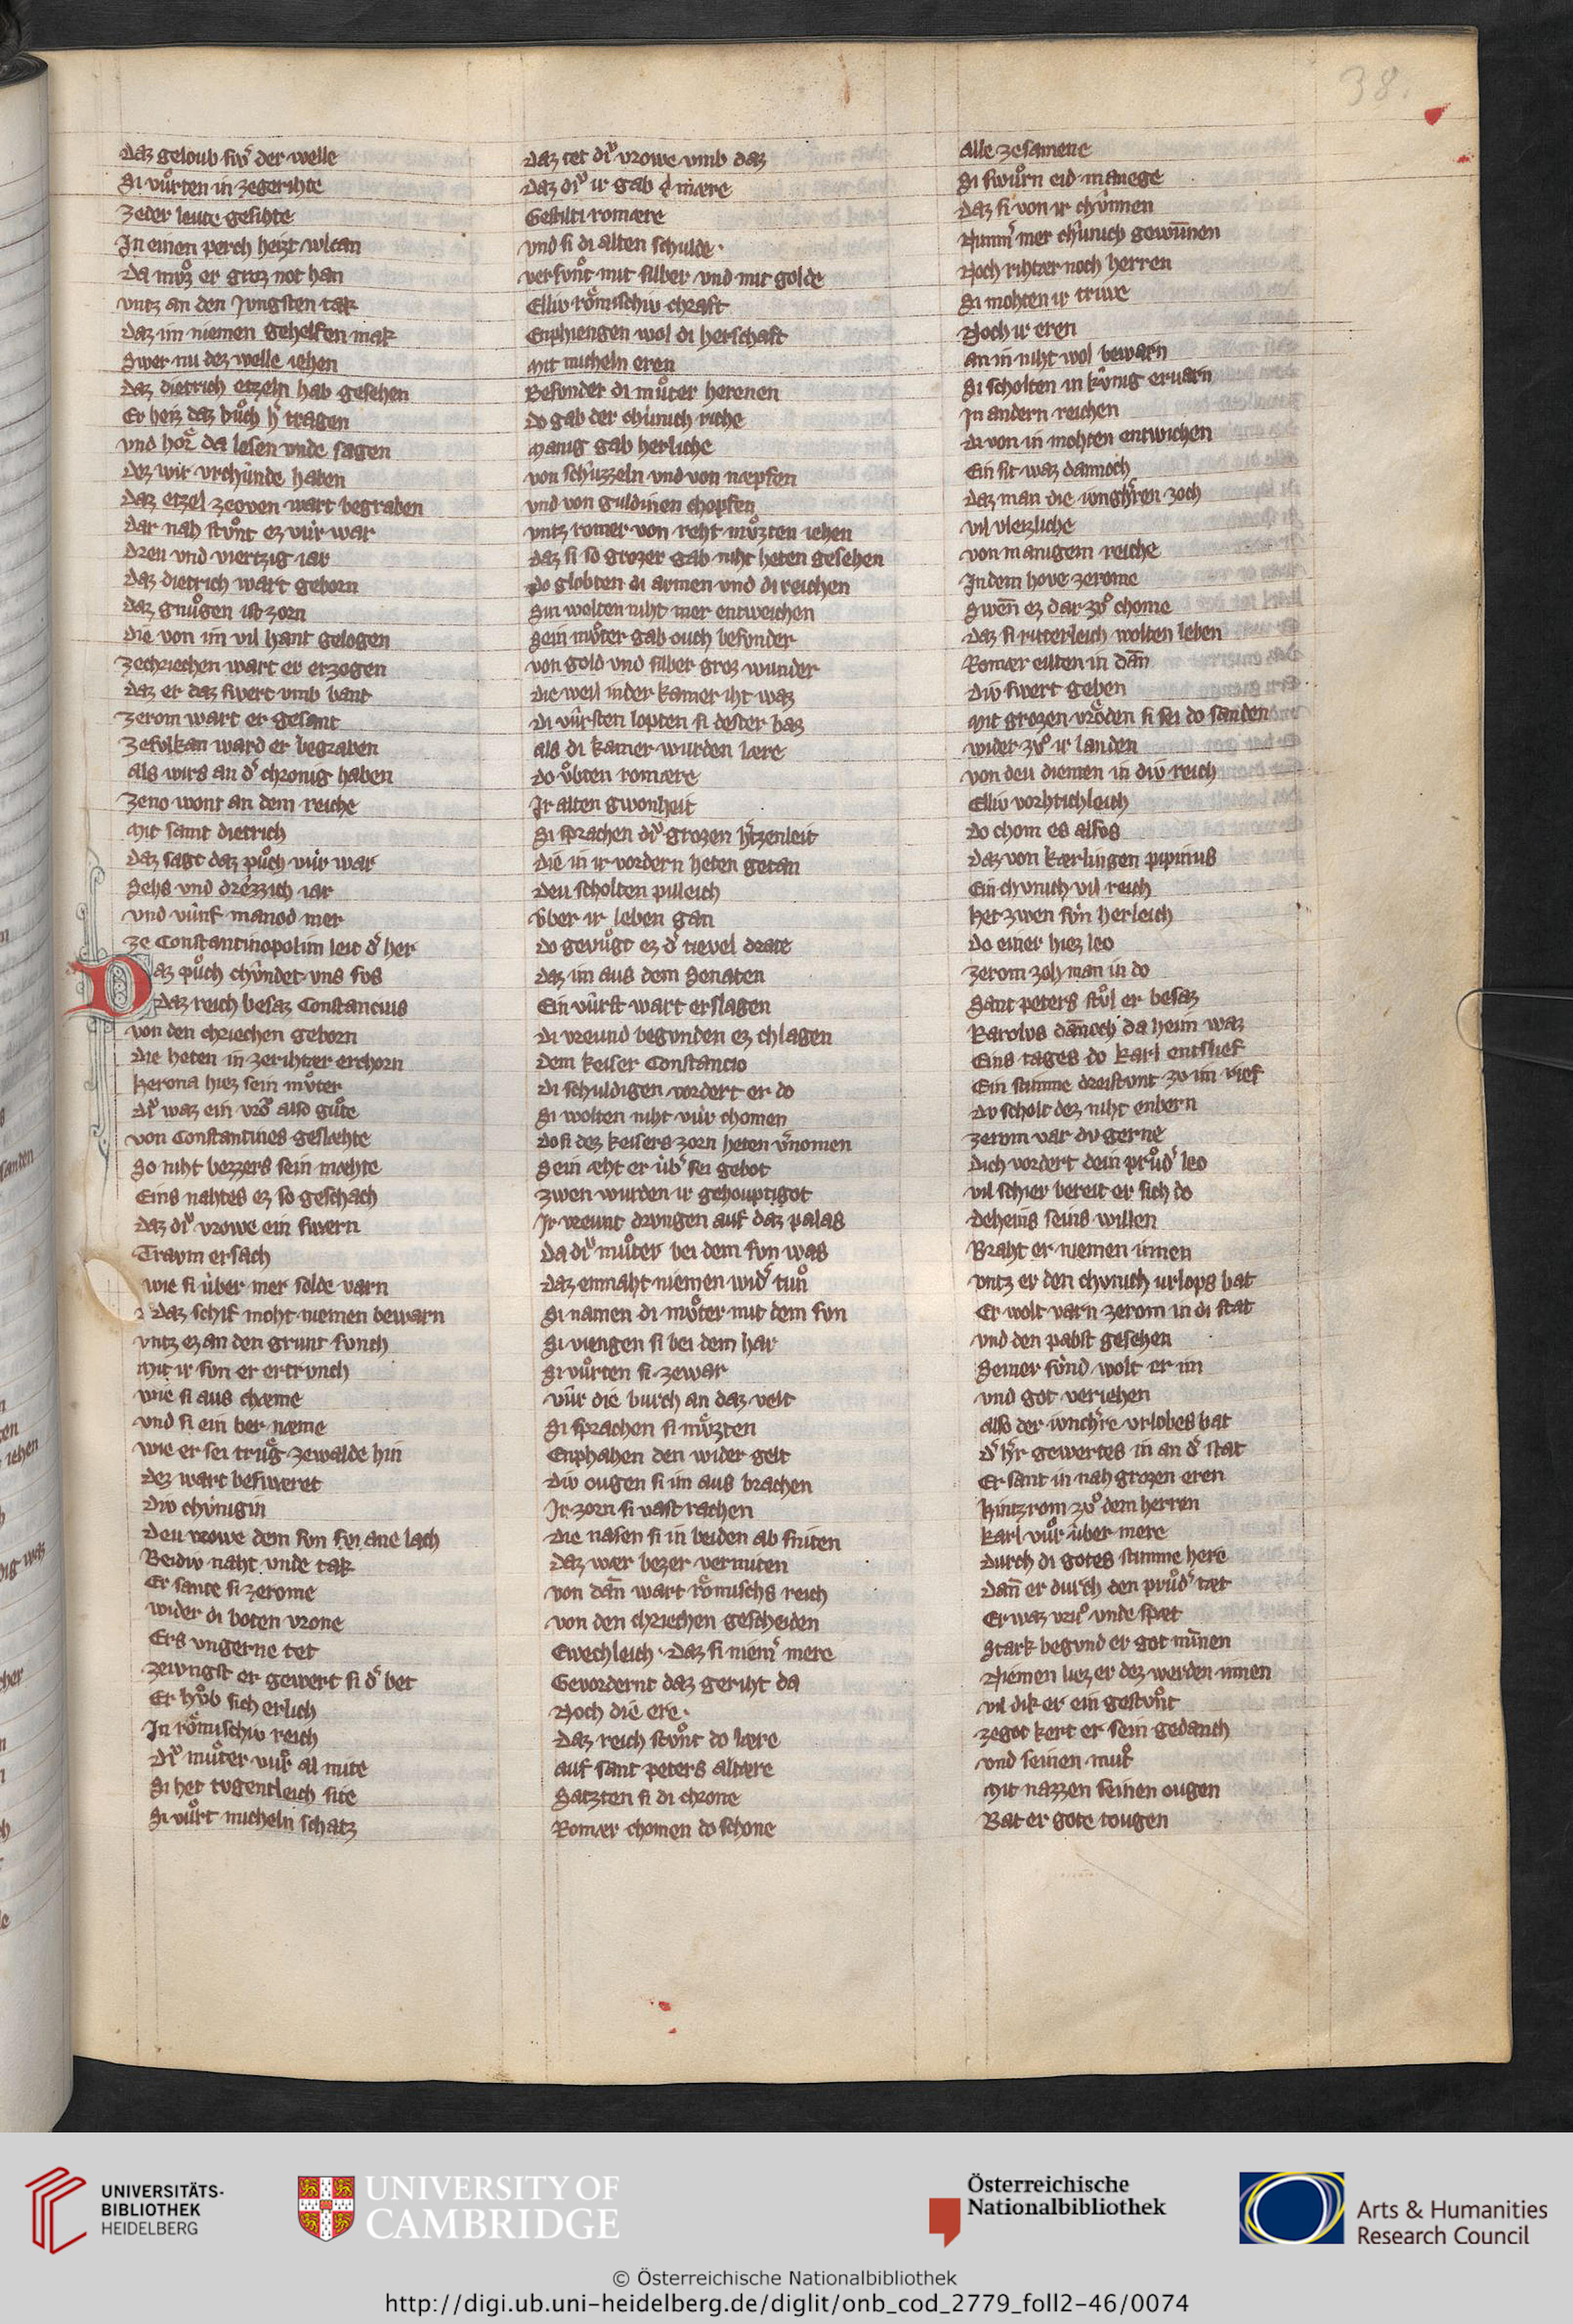 38.
daz geloub swͥ der welle
Si vuͦrten in zegerihte
Zeder leute gesihte
In einen perch heizt wlcan
Da muͦz er groz not han
vntz an den Jungsten tak
daz im niemen gehelfen mak
Swer nu dez welle iehen
daz dietrich etzeln hab gesehen
Er heiz daz buͦch hͤ tragen
vnd hoͤr da lesen vnde sagen
dez wir vrchunde haben
daz etzel zeoven wart begraben
dar nah stuͦnt ez vur war
dreu vnd viertzig iar
daz dietrich wart geborn
daz gnuͦgen ist zorn
die von im vil hant gelogen
Zechriechen wart er erzogen
daz er daz swert vmb bant
Zerom wart er gesant
Zefulkan ward er begraben
als wirs an dͤ chronig haben
Zeno wont an dem reiche
Mit samt dietrich
daz sagt daz puͦch vur war
Sehs vnd drezzich iar
vnd vunf manod mer
ze Constantinopolim leit dͤ her
Daz puͦch chundet vns sus
daz reich besaz Constancius
von den chriechen geborn
die heten in zerihter erchorn
herona hiez sein muͦter
diͤ waz ein vroͮ also guͦte
von Constantines geslæhte
So niht bezzers sein mæhte
Eins nahtes ez so geschach
daz diͤ vrowe ein swern
Travm ersach
wie si uber mer solde varn
daz schif moht niemen bewarn
vntz ez an den grunt sunch
Mit ir sun er ertrunch
wie si aus chæme
vnd si ein ber næme
wie er sei truͦg zewalde hin
dez wart beswæret
div chunigin
deu vrowe dem sun sei ane lach
Beidiv naht vnde tak
Er sante si zerome
wider di boten vrone
Ers vngerne tet
Zeiungst er gewert si dͤ bet
Er huͦb sich erlich
In roͤmischiv reich
diͤ muͦter vuͦr al mite
Si het tugentleich site
Si vuͦrt micheln schatz
daz tet diͤ vrowe vmb daz
daz diͤ ir gab dͤ mære
Gestilti romære
vnd si di alten schulde
versuͦnt mit silber vnd mit golde
Elliv roͤmischiv chraft
Enphiengen wol di herschaft
Mit micheln eren
Besunder di muͦter herenen
do gab der chunich riche
Manig gab herliche
von schuzzeln vnd von næpfen
vnd von guldinen chopfen
vntz romer von reht muͦzten iehen
daz si so grozer gab niht heten gesehen
do globten di armen vnd di reichen
Sin wolten niht mer entweichen
Sein muͦter gab ouch besunder
von gold vnd silber groz wunder
die weil inder kamer iht waz
di vursten lopten si dester baz
als di kamer wurden lære
do uͦbten romære
Ir alten gwonheit
Si sprachen diͤ grozen hͤtzenleit
die in ir vordern heten getan
deu scholten pilleich
vber ir leben gan
do gevuͦgt ez dͤ tievel drate
daz im aus dem Senaten
Ein vurst wart erslagen
di vreund begunden ez chlagen
dem keiser Constancio
di schuldigen vordert er do
Si wolten niht vur chomen
do si dez keisers zorn heten vͤnomen
Sein æht er ubͤ sei gebot
Zwen wurden ir gehouptigot
Ir vreunt drungen auf daz palas
da diͤ muͦter bei dem sun was
daz enmaht niemen widͤ tuͦn
Si namen di muͦter mit dem sun
Si viengen si bei dem har
Si vuͦrten si zewar
vur die burch an daz velt
Si sprachen si muͦzten
Enphahen den wider gelt
div ougen si im aus brachen
Ir zorn si vast rachen
die nasen si in beiden ab sniten
daz wær bezer vermiten
von dan̄ wart roͤmischs reich
von den chriechen gescheiden
Ewechleich daz si niemͤ mere
Gevordernt daz geriht da
Noch die ere
daz reich stuͦnt do lære
auf sant peters altære
Satzten si di chrone
Romær chomen do schone
alle zesamene
Si swuͦrn eid manege
daz si von ir chunnen
Nimmͤ mer chunich gewun̄en
Noch rihter noch herren
Si mohten ir triwe
Noch ir eren
an in niht wol bewarn
Si scholten in kunig ervarn
In andern reichen
di von in mohten entwichen
Ein sit waz dannoch
daz man die iunghͤren zoch
vil vleizliche
von manigem reiche
Indem hove zerome
Swen̄ ez dar zuͦ chome
daz si ritterleich wolten leben
Romær eilten in dan̄
div swert geben
Mit grozen vroͤden si sei do sanden
wider zuͦ ir landen
von deu dienten in div reich
Elliv vorhtichleich
do chom es alsus
daz von kærlingen pipinus
Ein chunich vil reich
Het zwen sun herleich
do einer hiez leo
Zerom zoh man in do
Sant peters stuͦl er besaz
Karolus dan̄och da heim waz
Eins tages do karl entslief
Ein stimme dreistunt zu im rief
du scholt dez niht enbern
Zerom var du gerne
dich vordert dein pruͦdͤ leo
vil schier bereit er sich do
deheins seins willen
Braht er niemen innen
vntz er den chunich urlops bat
Er wolt varn zerom in di stat
vnd den pabst gesehen
Seiner sund wolt er im
vnd got veriehen
also der iunchͤre vrlobes bat
dͤ hͤr gewertes in an dͤ stat
Er sant in nah grozen eren
hintz rom zuͦ dem herren
karl vuͦr uber mere
durch di gotes stimme here
dan̄ er durch den pruͦdͤ tæt
Er waz vruͦ vnde spæt
Stark begund er got min̄en
Niemen liez er dez werden innen
vil dik er ein gestuͦnt
Zegot kert er sein gedanch
vnd seinen muͦt
Mit nazzen seinen ougen
Bat er gote tougen
UNIVERSITÄTS-
BIBLIOTHEK
HEIDELBERG
UNIVERSITY OF
CAMBRIDGE
Österreichische
Nationalbibliothek
Arts & Humanities
Research Council
© Österreichische Nationalbibliothek
http://digi.ub.uni-heidelberg.de/diglit/onb_cod_2779_foll2-46/0074